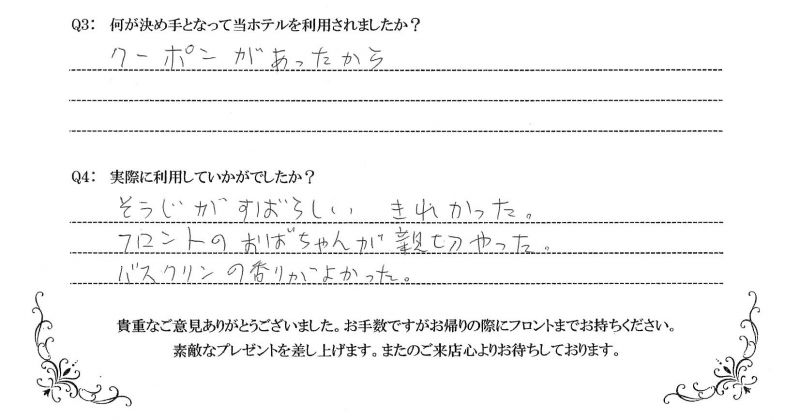 Q3： 何が決め手となって当ホテルを利用されましたか？
クーポンがあったから
Q4： 実際に利用していかがでしたか？
そうじがすばらしい きれかった。
フロントのおばちゃんが親切やった。
バスクリンの香りがよかった。
貴重なご意見ありがとうございました。お手数ですがお帰りの際にフロントまでお持ちください。
素敵なプレゼントを差し上げます。またのご来店心よりお待ちしております。